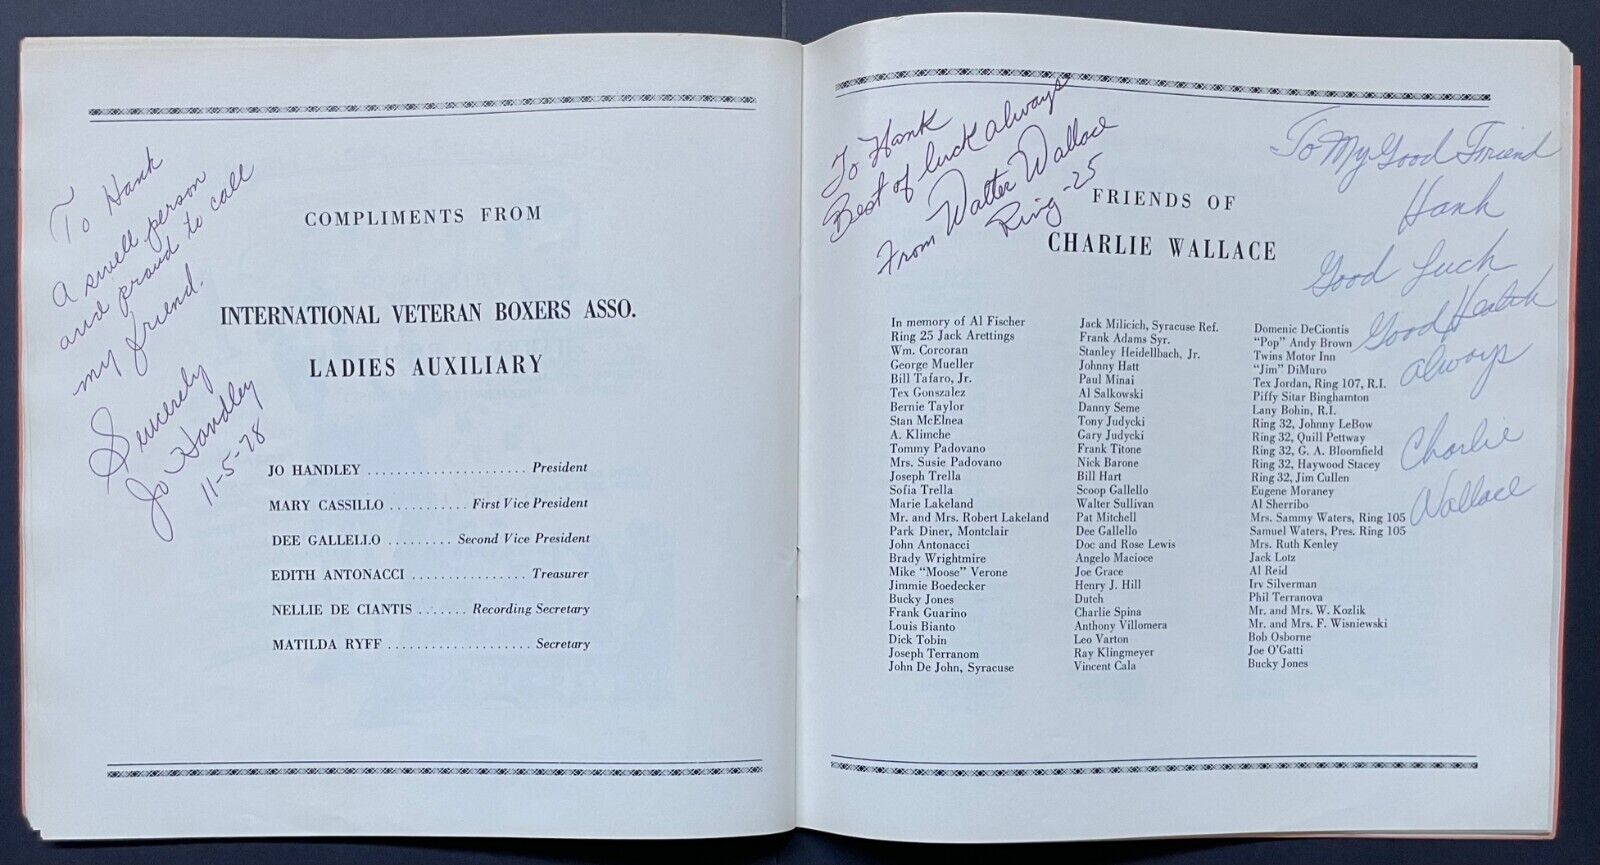 To Hank
A swell person
and proud to call
my friend.
Sincerely
Jo Handley
11-5-78
COMPLIMENTS FROM
INTERNATIONAL VETERAN BOXERS ASSO.
LADIES AUXILIARY
JO HANDLEY ...................... President
MARY CASSILLO ........... First Vice President
DEE GALLELLO ......... Second Vice President
EDITH ANTONACCI ................ Treasurer
NELLIE DE CIANTIS ....... Recording Secretary
MATILDA RYFF .................... Secretary
To Hank
Best of luck always
From Walter Wallace
Ring -25
To My Good Friend
Hank
Good Luck
Good Health
always
Charlie
Wallace
FRIENDS OF
CHARLIE WALLACE
In memory of Al Fischer
Ring 25 Jack Arettings
Wm. Corcoran
George Mueller
Bill Tafaro, Jr.
Tex Gonszalez
Bernie Taylor
Stan McElnea
A. Klimche
Tommy Padovano
Mrs. Susie Padovano
Joseph Trella
Sofia Trella
Marie Lakeland
Mr. and Mrs. Robert Lakeland
Park Diner, Montclair
John Antonacci
Brady Wrightmire
Mike "Moose" Verone
Jimmie Boedecker
Bucky Jones
Frank Guarino
Louis Bianto
Dick Tobin
Joseph Terranom
John De John, Syracuse
Jack Milicich, Syracuse Ref.
Frank Adams Syr.
Stanley Heidellbach, Jr.
Johnny Hatt
Paul Minai
Al Salkowski
Danny Seme
Tony Judycki
Gary Judycki
Frank Titone
Nick Barone
Bill Hart
Scoop Gallello
Walter Sullivan
Pat Mitchell
Dee Gallello
Doc and Rose Lewis
Angelo Macioce
Joe Grace
Henry J. Hill
Dutch
Charlie Spina
Anthony Villomera
Leo Varton
Ray Klingmeyer
Vincent Cala
Domenic DeCiontis
"Pop" Andy Brown
Twins Motor Inn
"Jim" DiMuro
Tex Jordan, Ring 107, R.I.
Piffy Sitar Binghamton
Lany Bohin, R.I.
Ring 32, Johnny LeBow
Ring 32, Quill Pettway
Ring 32, G. A. Bloomfield
Ring 32, Haywood Stacey
Ring 32, Jim Cullen
Eugene Moraney
Al Sherribo
Mrs. Sammy Waters, Ring 105
Samuel Waters, Pres. Ring 105
Mrs. Ruth Kenley
Jack Lotz
Al Reid
Irv Silverman
Phil Terranova
Mr. and Mrs. W. Kozlik
Mr. and Mrs. F. Wisniewski
Bob Osborne
Joe O'Gatti
Bucky Jones